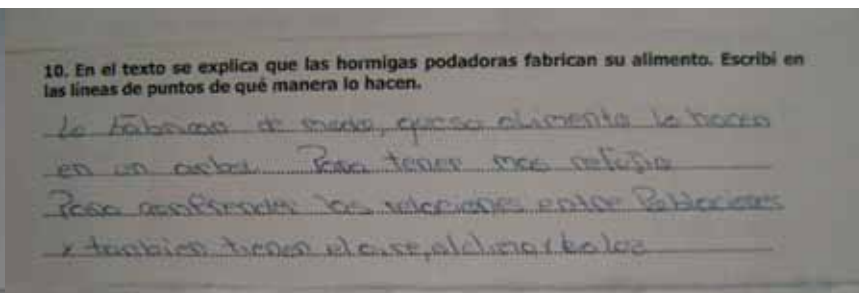 10. En el texto se explica que las hormigas podadoras fabrican su alimento. Escribí en
las líneas de puntos de qué manera lo hacen.
Lo fabrican de modo, que su alimento lo hacen
en un arbol Para tener mas refugio
Para comprender las relaciones entre Poblaciones
y tambien tienen el aire, el clima y la luz